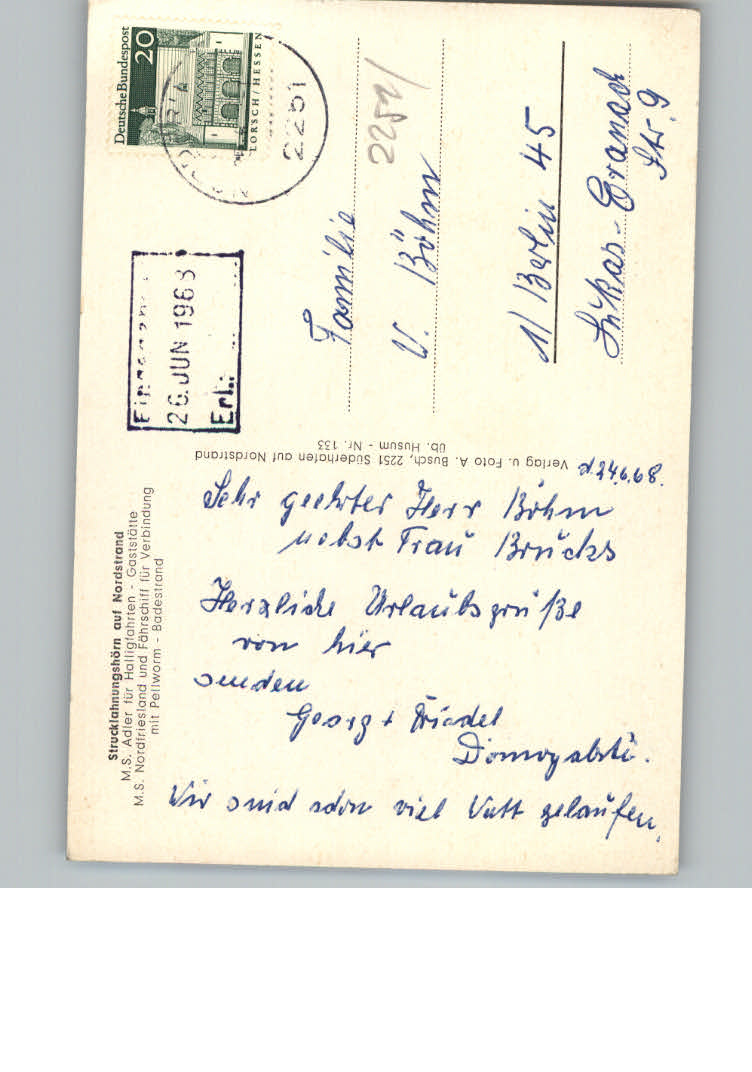 Strucklahnungshörn auf Nordstrand
M.S. Adler für Halligfahrten - Gaststätte
M.S. Nordfriesland und Fährschiff für Verbindung
mit Pellworm - Badestrand
d. 24.6.68.
Sehr geehrter Herr Böhm
nebst Frau Brucks
Herzliche Urlaubsgrüße
von hier
senden
Georg + Friedel
Wir sind schon viel Watt gelaufen.
Verlag u. Foto A. Busch, 2251 Süderhafen auf Nordstrand
üb. Husum - Nr. 133
Deutsche Bundespost
20
LORSCH/HESSEN
2251
26. JUN 1968
Erl.:
2251/
Familie
W. Böhm
1/ Berlin 45
Str. 9